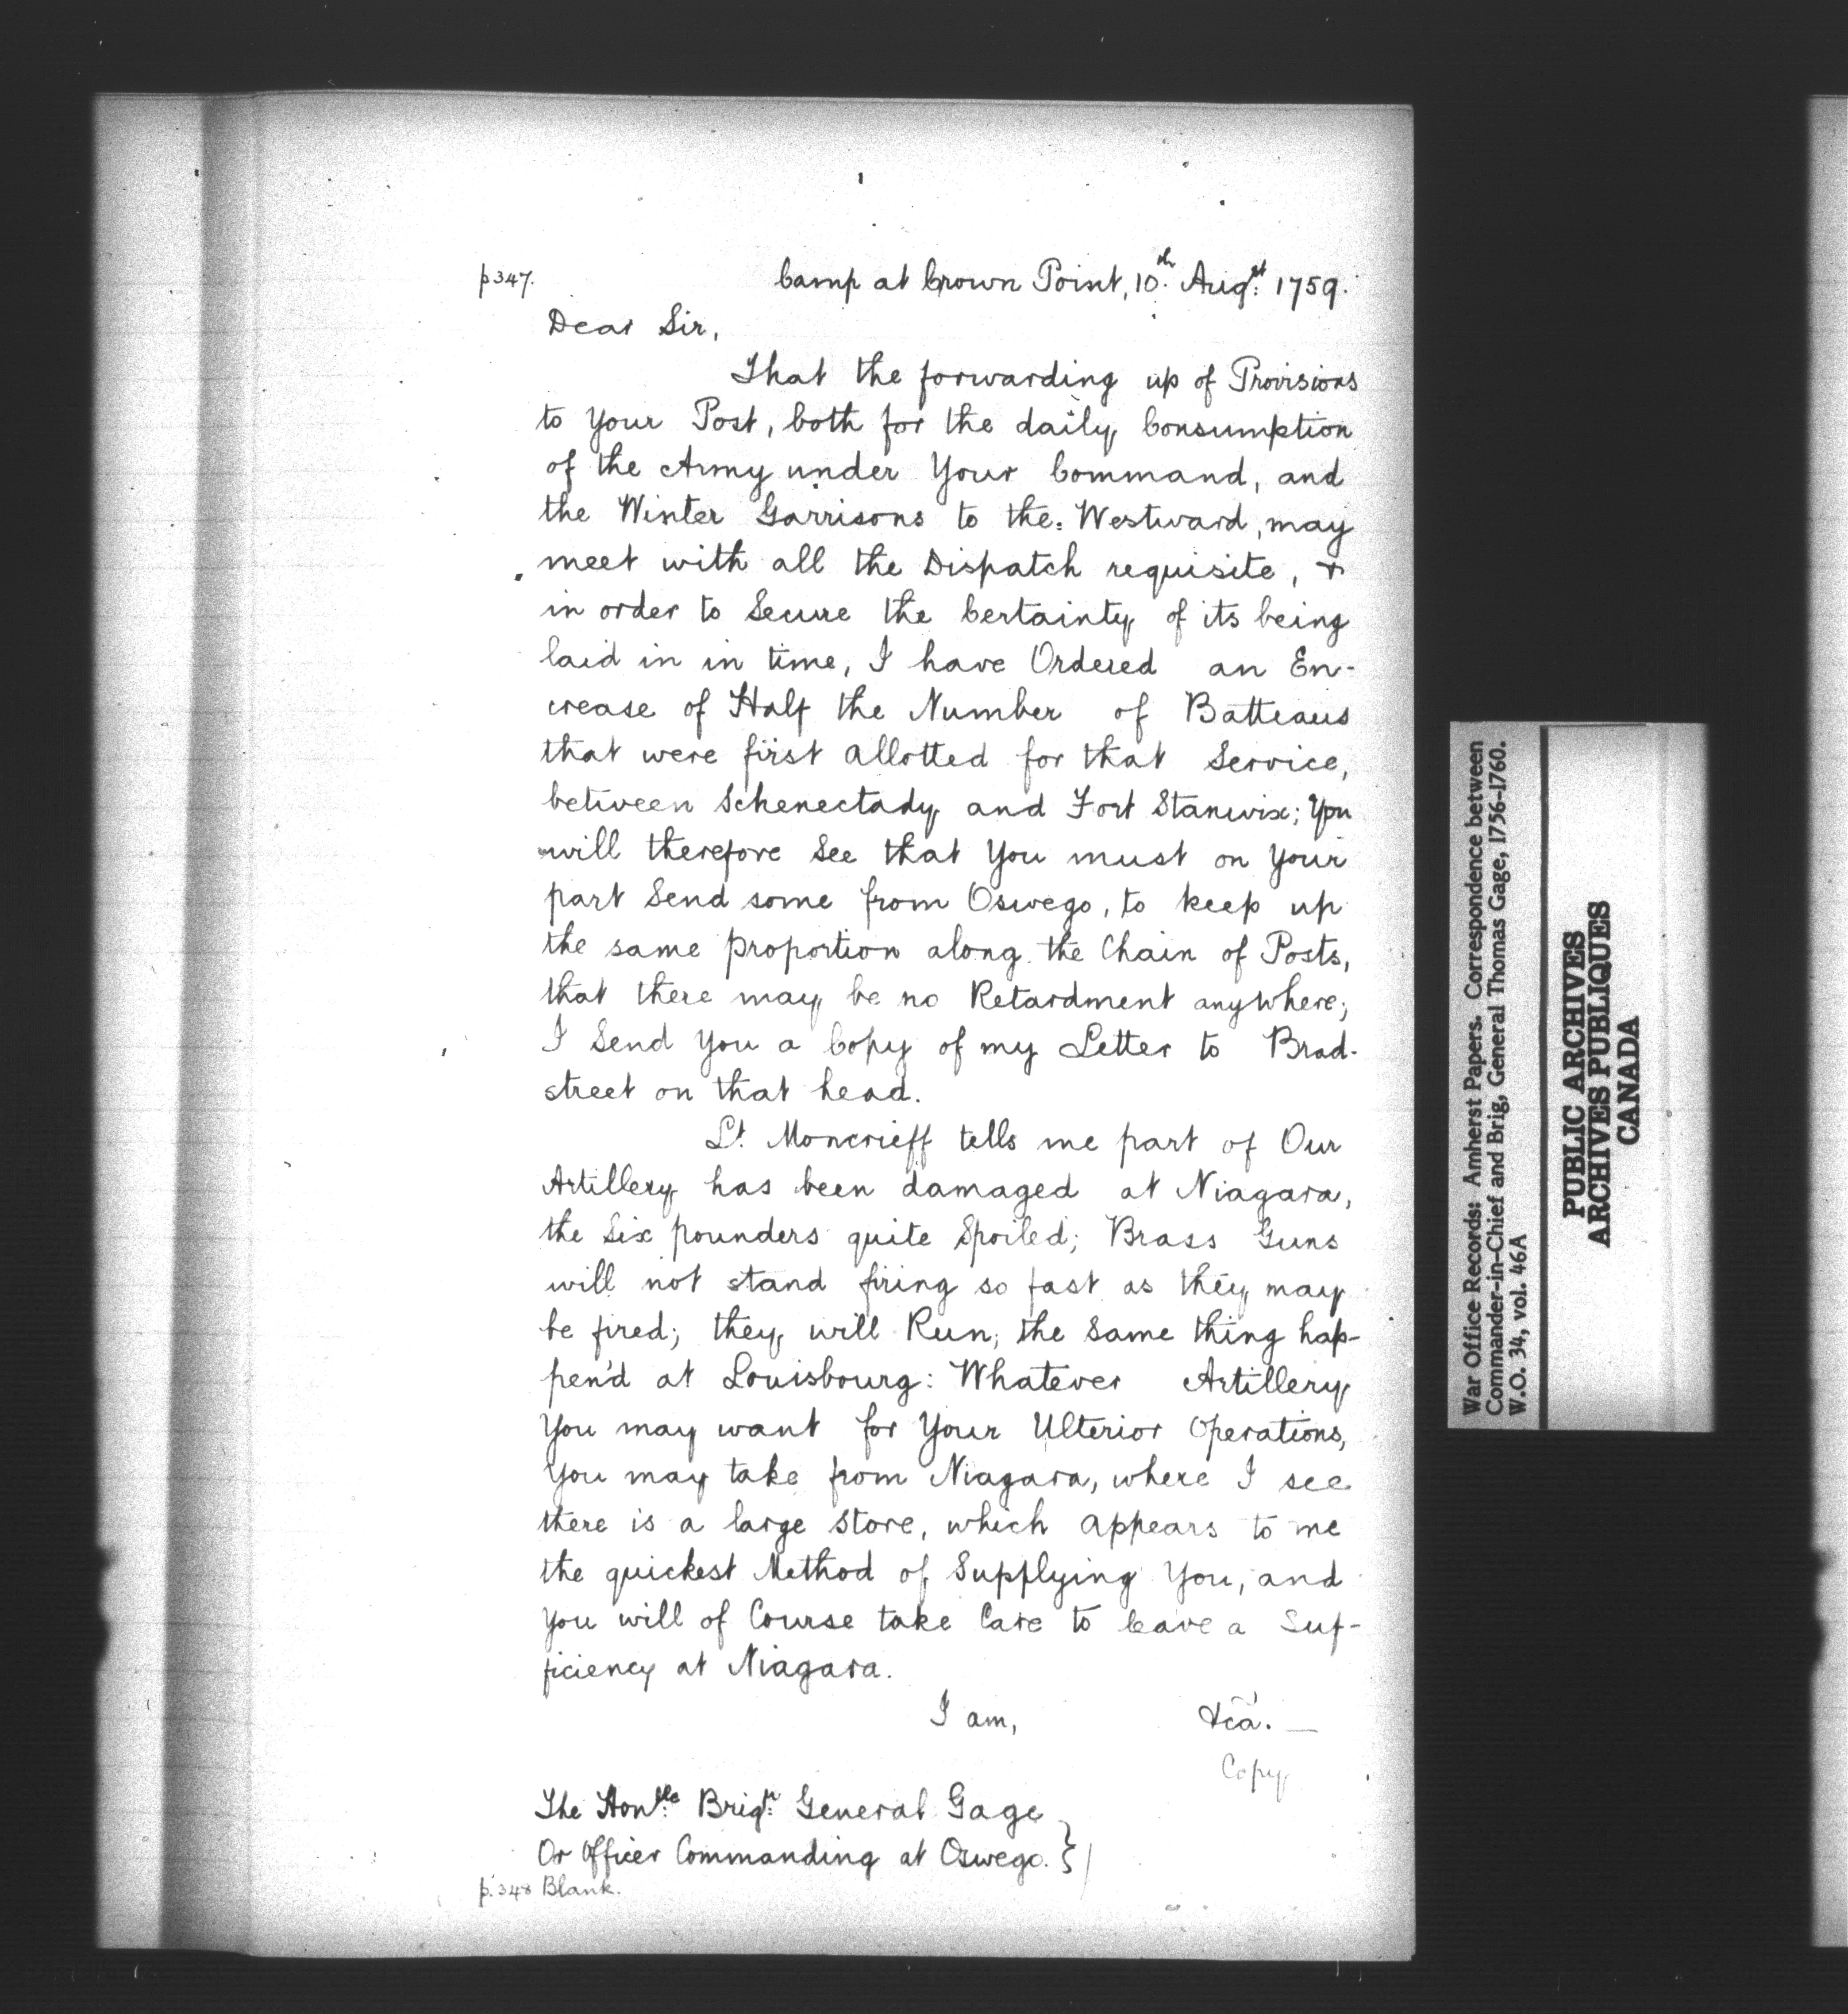 p347.
Camp at Crown Point, 10th. Augst: 1759.
Dear Sir,
That the forwarding up of Provisions
to Your Post, both for the daily Consumption
of the Army under Your Command, and
the Winter Garrisons to the Westward, may
meet with all the Dispatch requisite, &
in order to Secure the Certainty of its being
laid in in time, I have Ordered an En-
crease of Half the Number of Batteaus
that were first allotted for that Service,
between Schenectady and Fort Stanwix; You
will therefore See that You must on Your
part Send some from Oswego, to keep up
the same proportion along the Chain of Posts,
that there may be no Retardment anywhere;
I Send You a Copy of my Letter to Brad-
street on that head.
Lt. Moncrieff tells me part of Our
Artillery has been damaged at Niagara,
the Six pounders quite Spoiled; Brass Guns
will not stand firing so fast as they may
be fired; they will Run; the Same thing hap-
pen'd at Louisbourg: Whatever Artillery
You may want for Your Ulterior Operations,
You may take from Niagara, where I see
there is a large Store, which appears to me
the quickest Method of Supplying You, and
You will of Course take Care to leave a Suf-
ficiency at Niagara.
I am, &ca. —
Copy
The Honble: Brigr: General Gage
Or Officer Commanding at Oswego. }
p. 348 Blank.
War Office Records: Amherst Papers. Correspondence between
Commander-in-Chief and Brig, General Thomas Gage, 1756-1760.
W.O. 34, vol. 46A
PUBLIC ARCHIVES
ARCHIVES PUBLIQUES
CANADA